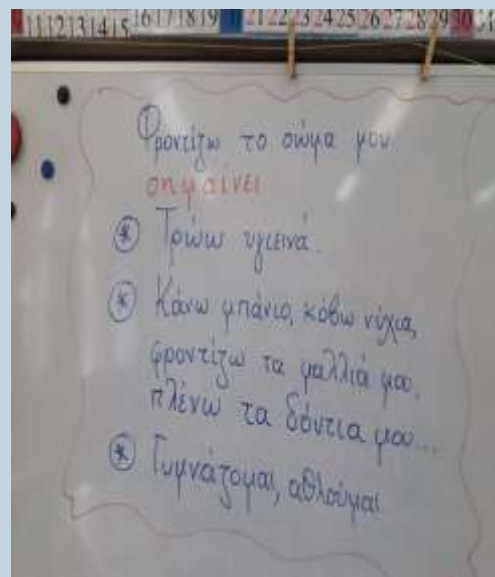 11 12 13 14 15 16 17 18 19 21 22 23 24 25 26 27 28 29 30
Φροντίζω το σώμα μου
σημαίνει
* Τρώω υγιεινά.
* Κάνω μπάνιο, κόβω νύχια,
φροντίζω τα μαλλιά μου,
πλένω τα δόντια μου...
* Γυμνάζομαι, αθλούμαι